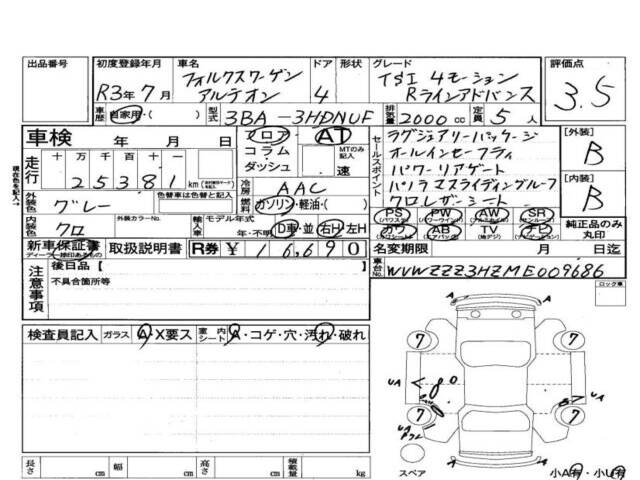 出品番号 初度登録年月 車名 ドア 形状 グレード 評価点
R3年7月 フォルクスワーゲン アルテオン 4 TSI 4モーション Rラインアドバンス 3.5
車歴 自家用・( ) 型式 3BA-3HDNUF 排気量 2000cc 定員 5人
車検 年 月 日
フロア AT
コラム MTのみ記入
ダッシュ 速
走行 十 万 千 百 十 一
25381 km
冷房 AAC
外装色 グレー 色替車は元色 色替車記入
燃料 ガソリン・軽油・( )
内装色 クロ 外装カラーNo.
輸入車 モデル年式 年・不明 D車・並 右H・左H
新車保証書 取扱説明書 R券 ¥16,690
ディーラー様印あるもの
セールスポイント
ラグジュアリーパッケージ
オールインセーフティ
パワーリアゲート
パノラマスライディングルーフ
クロレザーシート
PS PW AW SR
カワ AB TV ナビ
[外装] B
[内装] B
純正品のみ丸印
名変期限 月 日迄
車台No. WVWZZZ3HZME009686
注意事項 後日品【 】
不具合箇所等
ロック車
検査員記入 ガラス A・X要ス 室内シート A・コゲ・穴・汚れ・破れ
A
7 7
UA UA
7 7
UA
スペア A 小A有・小U有
長さ cm 幅 cm 高さ cm 積載量 kg
現在色を記入